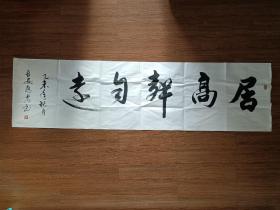 居高聲自遠
乙未年秋月